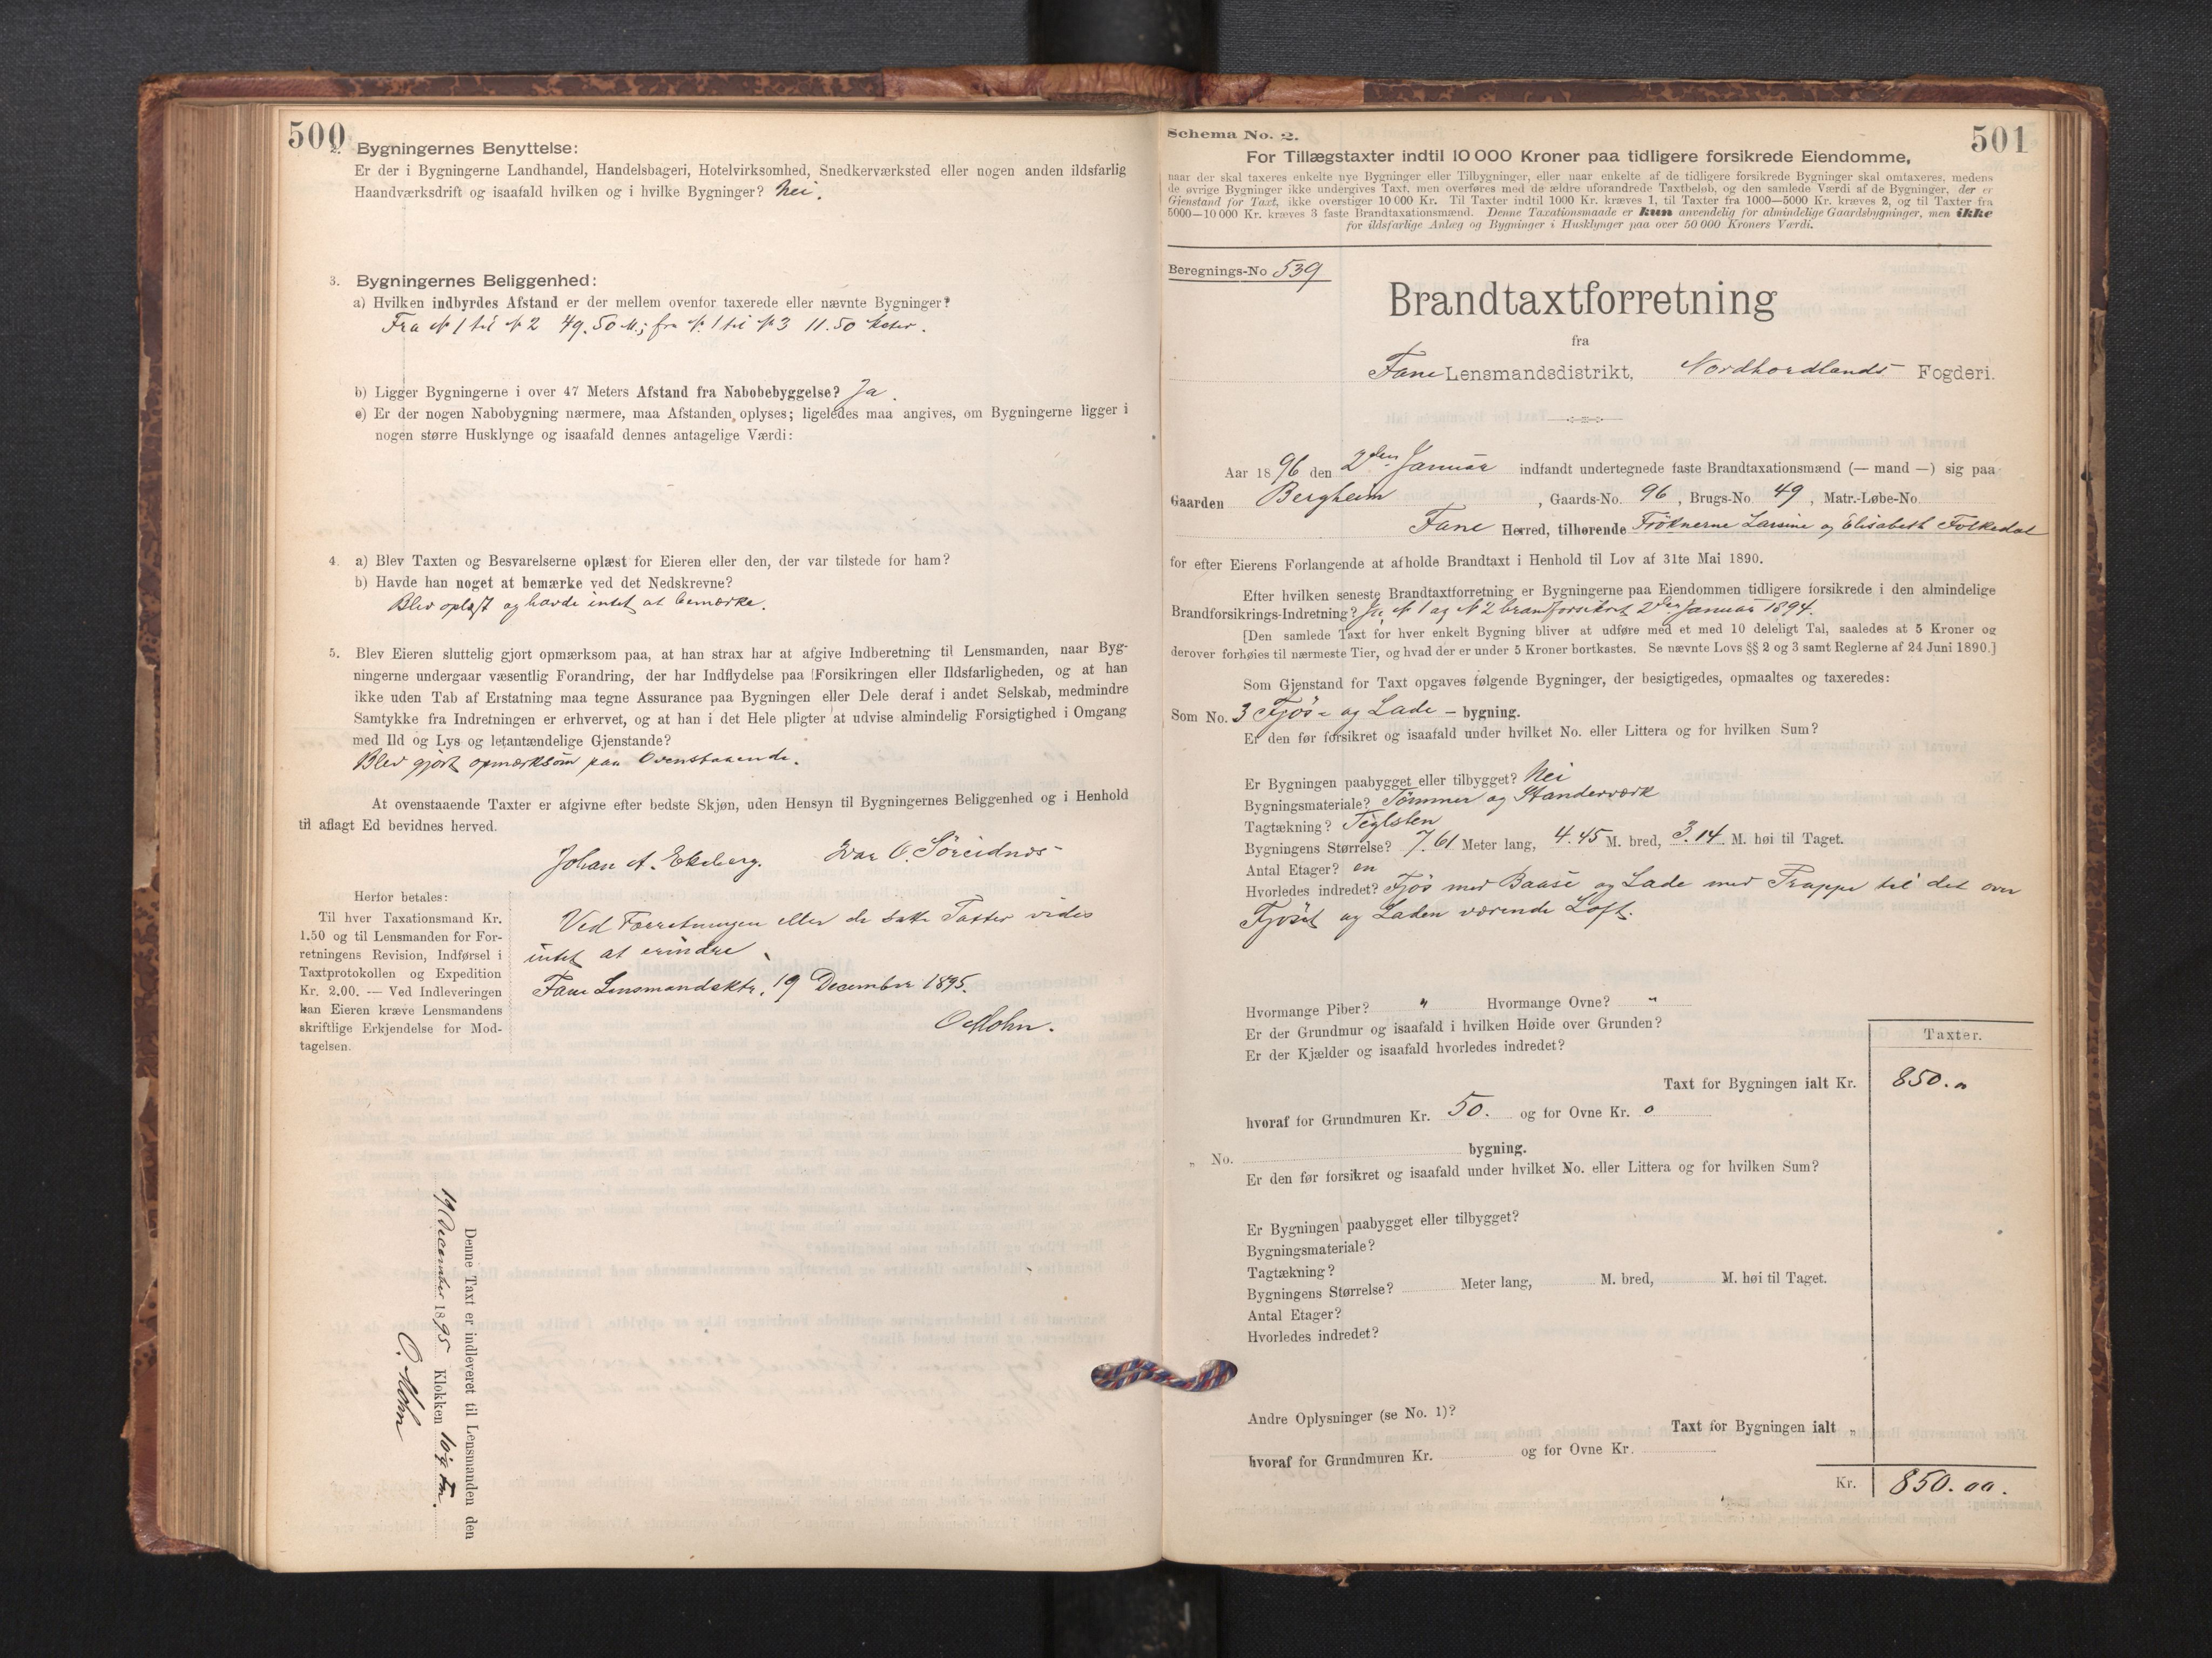 500
2. Bygningernes Benyttelse:
Er der i Bygningerne Landhandel, Handelsbageri, Hotelvirksomhed, Snedkerværksted eller nogen anden ildsfarlig
Haandværksdrift og isaafald hvilken og i hvilke Bygninger? Nei.
3. Bygningernes Beliggenhed:
a) Hvilken indbyrdes Afstand er der mellem ovenfor taxerede eller nævnte Bygninger?
Fra № 1 til № 2 49.50 M; fra № 1 til № 3 11.50 Meter.
b) Ligger Bygningerne i over 47 Meters Afstand fra Nabobebyggelse? Ja.
c) Er der nogen Nabobygning nærmere, maa Afstanden oplyses; ligeledes maa angives, om Bygningerne ligger i
nogen større Husklynge og isaafald dennes antagelige Værdi:
4. a) Blev Taxten og Besvarelserne oplæst for Eieren eller den, der var tilstede for ham?
b) Havde han noget at bemærke ved det Nedskrevne?
Blev oplæst og havde intet at bemærke.
5. Blev Eieren sluttelig gjort opmærksom paa, at han strax har at afgive Indberetning til Lensmanden, naar Byg-
ningerne undergaar væsentlig Forandring, der har Indflydelse paa Forsikringen eller Ildsfarligheden, og at han
ikke uden Tab af Erstatning maa tegne Assurance paa Bygningen eller Dele deraf i andet Selskab, medmindre
Samtykke fra Indretningen er erhvervet, og at han i det Hele pligter at udvise almindelig Forsigtighed i Omgang
med Ild og Lys og letantændelige Gjenstande?
Blev gjort opmærksom paa Ovenstaaende.
At ovenstaaende Taxter er afgivne efter bedste Skjøn, uden Hensyn til Bygningernes Beliggenhed og i Henhold
til aflagt Ed bevidnes herved.
Johan A. Ekeberg. Ivar O. Söreidnes
Herfor betales:
Til hver Taxationsmand Kr.
1.50 og til Lensmanden for For-
retningens Revision, Indførsel i
Taxtprotokollen og Expedition
Kr. 2.00. — Ved Indleveringen
kan Eieren kræve Lensmandens
skriftlige Erkjendelse for Mod-
tagelsen.
Ved Forretningen eller de satte Taxter vides
intet at erindre.
Fane Lensmandsktr. 19 December 1895.
O Mohn.
Denne Taxt er indleveret til Lensmanden den
19 December 1895 Klokken 10 
O. Mohn
Schema No. 2.
501
For Tillægstaxter indtil 10 000 Kroner paa tidligere forsikrede Eiendomme,
naar der skal taxeres enkelte nye Bygninger eller Tilbygninger, eller naar enkelte af de tidligere forsikrede Bygninger skal omtaxeres, medens
de øvrige Bygninger ikke undergives Taxt, men overføres med de ældre uforandrede Taxtbeløb, og den samlede Værdi af de Bygninger, der er
Gjenstand for Taxt, ikke overstiger 10 000 Kr. Til Taxter indtil 1000 Kr. kræves 1, til Taxter fra 1000—5000 Kr. kræves 2, og til Taxter fra
5000—10 000 Kr. kræves 3 faste Brandtaxationsmænd. Denne Taxationsmaade er kun anvendelig for almindelige Gaardsbygninger, men ikke
for ildsfarlige Anlæg og Bygninger i Husklynger paa over 50 000 Kroners Værdi.
Beregnings-No 539
Brandtaxtforretning
fra
Fane Lensmandsdistrikt, Nordhordlands Fogderi.
Aar 1896 den 2den Januar indfandt undertegnede faste Brandtaxationsmænd (— mand —) sig paa
Gaarden Bergheim, Gaards-No. 96, Brugs-No. 49, Matr.-Løbe-No.
Fane Herred, tilhørende Frøknerne Larsine og Elisabeth Folkedal
for efter Eierens Forlangende at afholde Brandtaxt i Henhold til Lov af 31te Mai 1890.
Efter hvilken seneste Brandtaxtforretning er Bygningerne paa Eiendommen tidligere forsikrede i den almindelige
Brandforsikrings-Indretning? Ja, № 1 og № 2 brandforsikret 2den Januar 1894.
[Den samlede Taxt for hver enkelt Bygning bliver at udføre med et med 10 deleligt Tal, saaledes at 5 Kroner og
derover forhøies til nærmeste Tier, og hvad der er under 5 Kroner bortkastes. Se nævnte Lovs §§ 2 og 3 samt Reglerne af 24 Juni 1890.]
Som Gjenstand for Taxt opgaves følgende Bygninger, der besigtigedes, opmaaltes og taxeredes:
Som No. 3 Fjös- og Lade - bygning.
Er den før forsikret og isaafald under hvilket No. eller Littera og for hvilken Sum?
Er Bygningen paabygget eller tilbygget? Nei
Bygningsmateriale? Tömmer og Standerværk
Tagtækning? Teglsten
Bygningens Størrelse? 7.61 Meter lang, 4.45 M. bred, 3.14 M. høi til Taget.
Antal Etager? en
Hvorledes indredet? Fjös med Baase og Lade med Trappe til det over
Fjöset og Laden værende Loft.
Hvormange Piber? " Hvormange Ovne? "
Er der Grundmur og isaafald i hvilken Høide over Grunden?
Er der Kjælder og isaafald hvorledes indredet?
Taxter.
Taxt for Bygningen ialt Kr. 850. "
hvoraf for Grundmuren Kr. 50. og for Ovne Kr. 0
„ No. bygning.
Er den før forsikret og isaafald under hvilket No. eller Littera og for hvilken Sum?
Er Bygningen paabygget eller tilbygget?
Bygningsmateriale?
Tagtækning?
Bygningens Størrelse? Meter lang, M. bred, M. høi til Taget.
Antal Etager?
Hvorledes indredet?
Andre Oplysninger (se No. 1)?
Taxt for Bygningen ialt „
hvoraf for Grundmuren Kr. og for Ovne Kr.
Kr. 850.00.